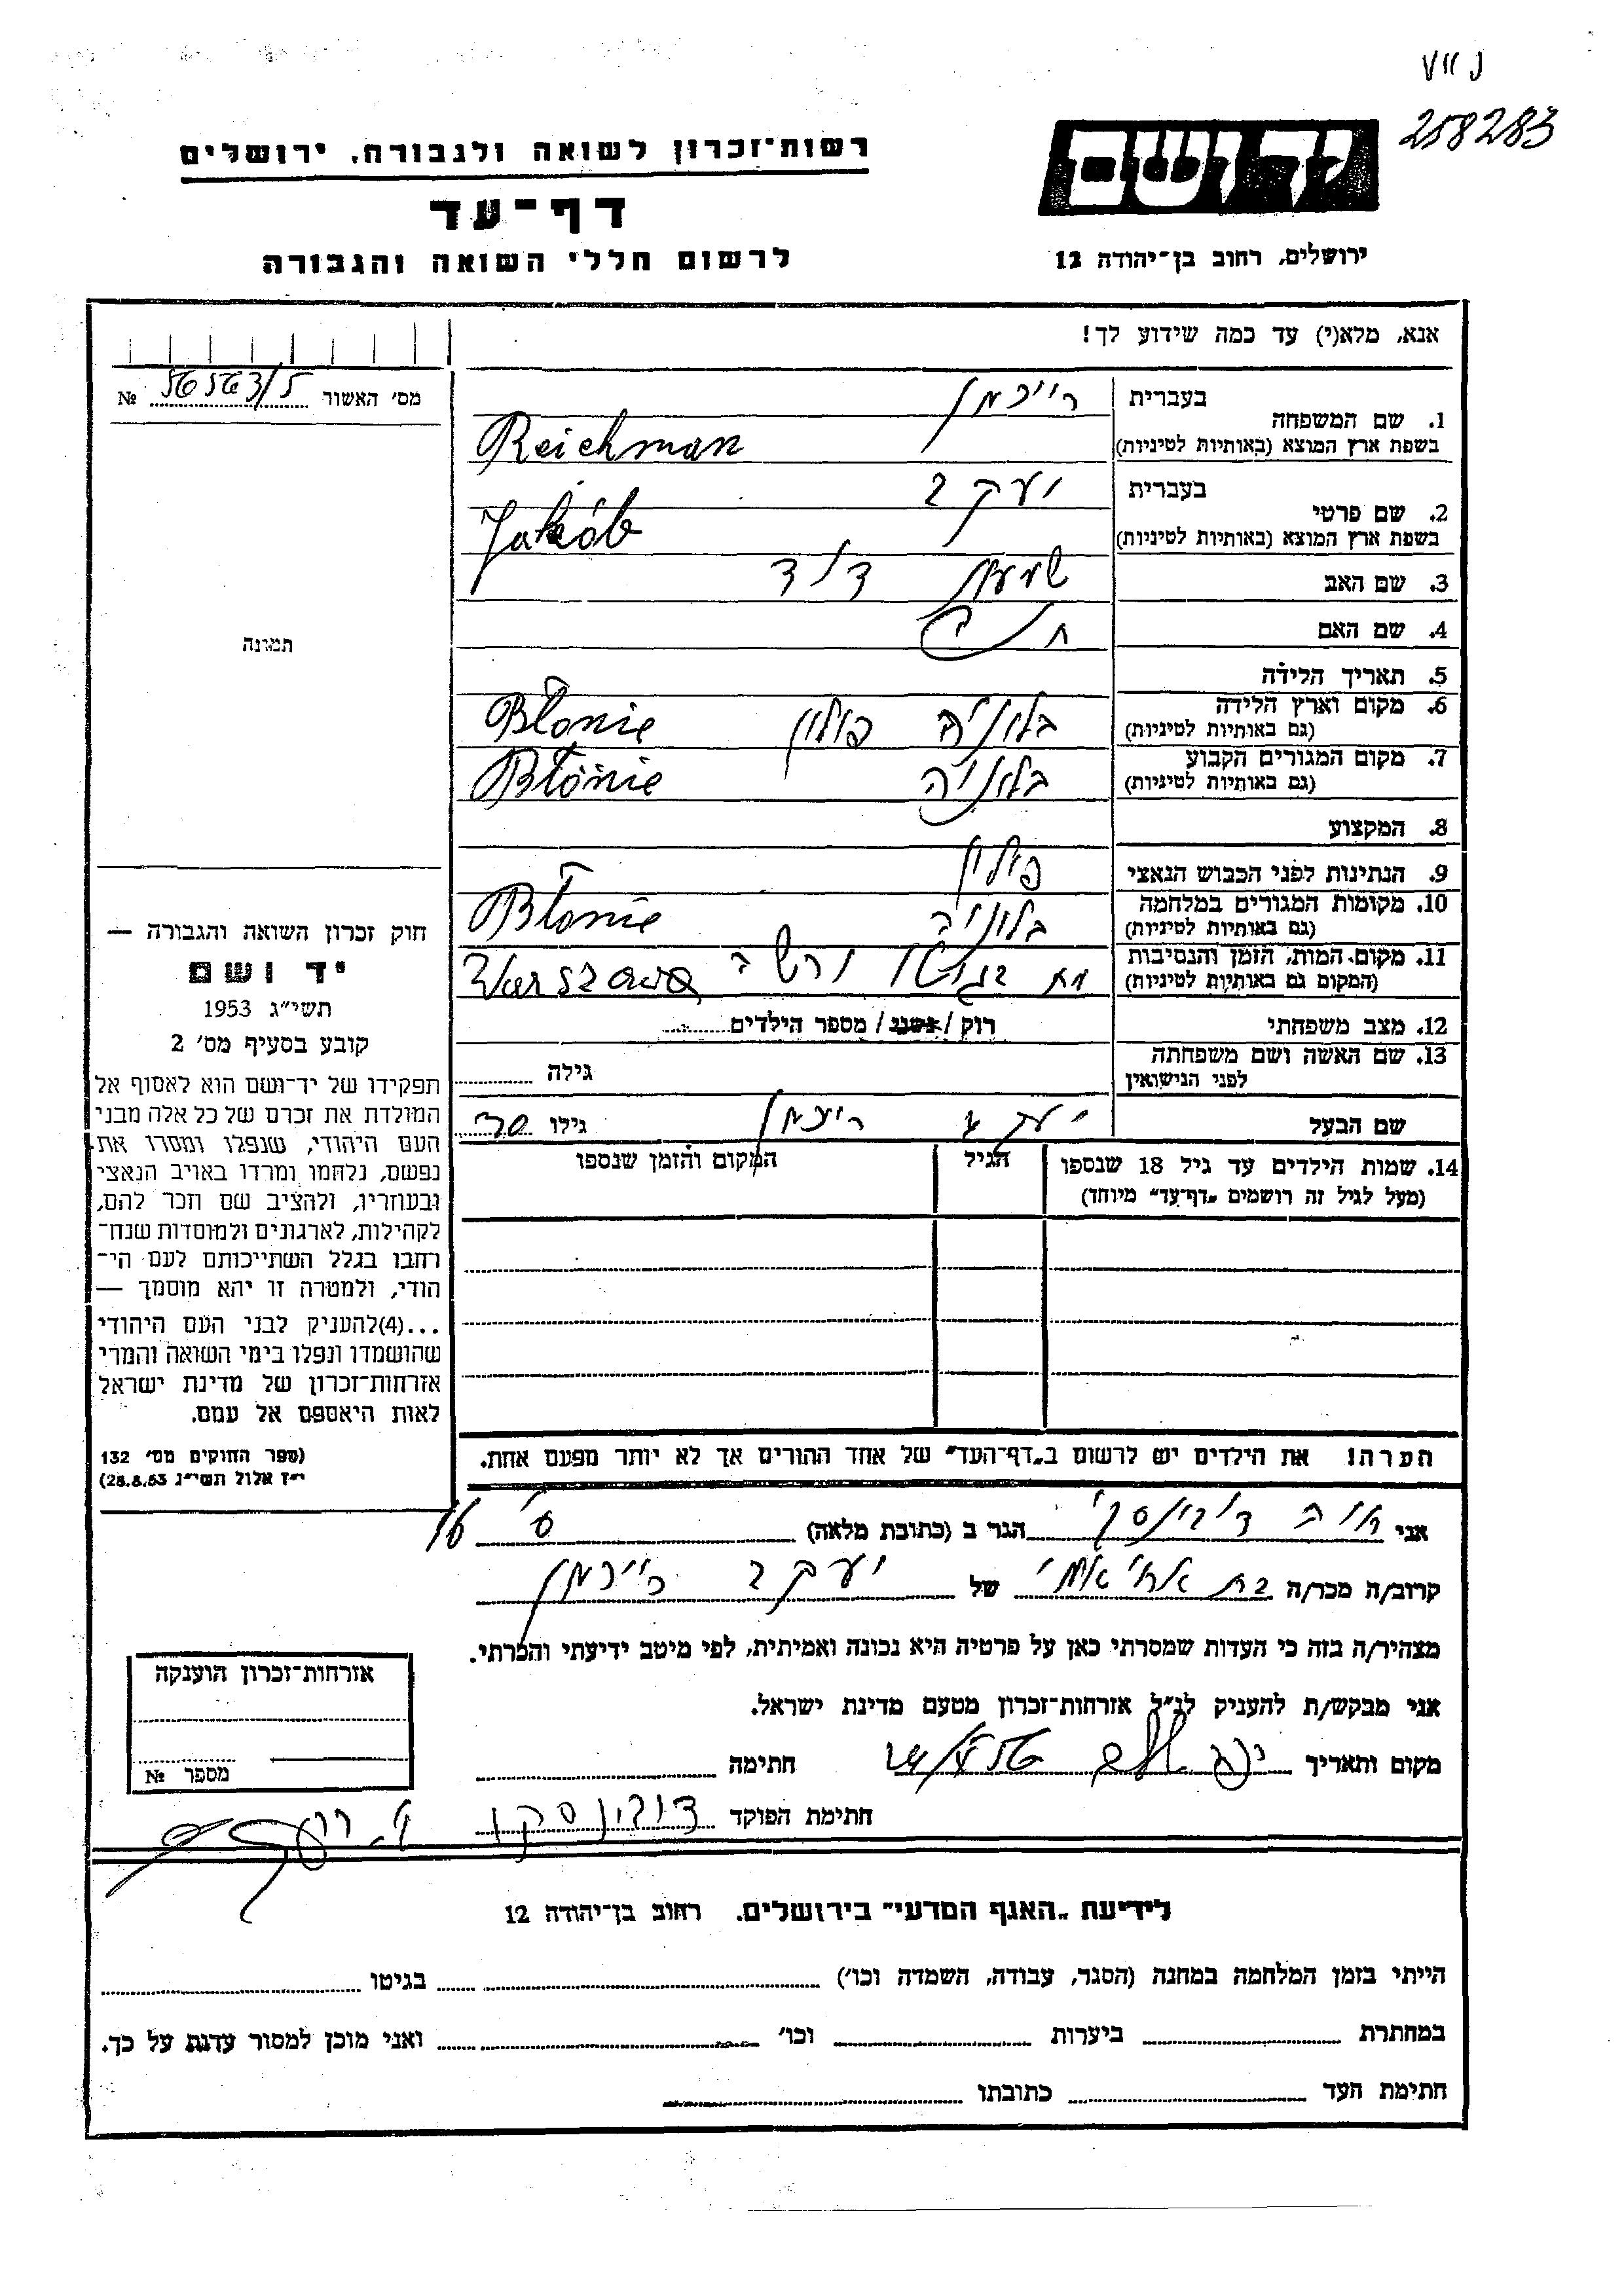 258283
רשות־זכרון לשואה ולגבורה, ירושלים
ידושם
דף־עד
ירושלים, רחוב בן־יהודה 12
לרשום חללי השואה והגבורה
אנא, מלא(י) עד כמה שידוע לך!
מס' האשור №
1. שם המשפחה בעברית רייכמן
בשפת ארץ המוצא (באותיות לטיניות) Reichman
2. שם פרטי בעברית יעקב
בשפת ארץ המוצא (באותיות לטיניות) Jakób
3. שם האב שמעון דוד
4. שם האם
תמונה
5. תאריך הלידה
6. מקום וארץ הלידה בלוניה פולין Błonie
(גם באותיות לטיניות)
7. מקום המגורים הקבוע בלוניה Błonie
(גם באותיות לטיניות)
8. המקצוע
9. הנתינות לפני הכבוש הנאצי פולין
10. מקומות המגורים במלחמה בלוניה Błonie
(גם באותיות לטיניות)
11. מקום המות, הזמן והנסיבות מת בגיטו ורשה Warszawa
(המקום גם באותיות לטיניות)
12. מצב משפחתי רוק / נשוי / מספר הילדים
13. שם האשה ושם משפחתה
לפני הנישואין גילה
שם הבעל יעקב רייכמן גילו 30
14. שמות הילדים עד גיל 18 שנספו הגיל המקום והזמן שנספו
(מעל לגיל זה רושמים "דף־עד" מיוחד)
הערה! את הילדים יש לרשום ב"דף־העד" של אחד ההורים אך לא יותר מפעם אחת.
חוק זכרון השואה והגבורה —
יד ושם
תשי"ג 1953
קובע בסעיף מס' 2
תפקידו של יד־ושם הוא לאסוף אל
המולדת את זכרם של כל אלה מבני
העם היהודי, שנפלו ומסרו את
נפשם, נלחמו ומרדו באויב הנאצי
ובעוזריו, ולהציב שם וזכר להם,
לקהילות, לארגונים ולמוסדות שנח־
רחבו בגלל השתייכותם לעם הי־
הודי, ולמטרה זו יהא מוסמך —
...(4)להעניק לבני העם היהודי
שהושמדו ונפלו בימי השואה והמרי
אזרחות־זכרון של מדינת ישראל
לאות היאספם אל עמם.
(ספר החוקים מס' 132
י"ז אלול תשי"ג 28.8.53)
אני דובינסקי הגר ב (כתובת מלאה)
קרוב/ה מכר/ה בת של יעקב רייכמן
מצהיר/ה בזה כי העדות שמסרתי כאן על פרטיה היא נכונה ואמיתית, לפי מיטב ידיעתי והכרתי.
אני מבקש/ת להעניק לנ"ל אזרחות־זכרון מטעם מדינת ישראל.
מקום ותאריך חתימה
חתימת הפוקד דובינסקי
אזרחות־זכרון הוענקה
מספר №
לידיעת "האגף המדעי" בירושלים. רחוב בן־יהודה 12
הייתי בזמן המלחמה במחנה (הסגר, עבודה, השמדה וכו') בגיטו
במחתרת ביערות וכו' ואני מוכן למסור עדות על כך.
חתימת העד כתובתו